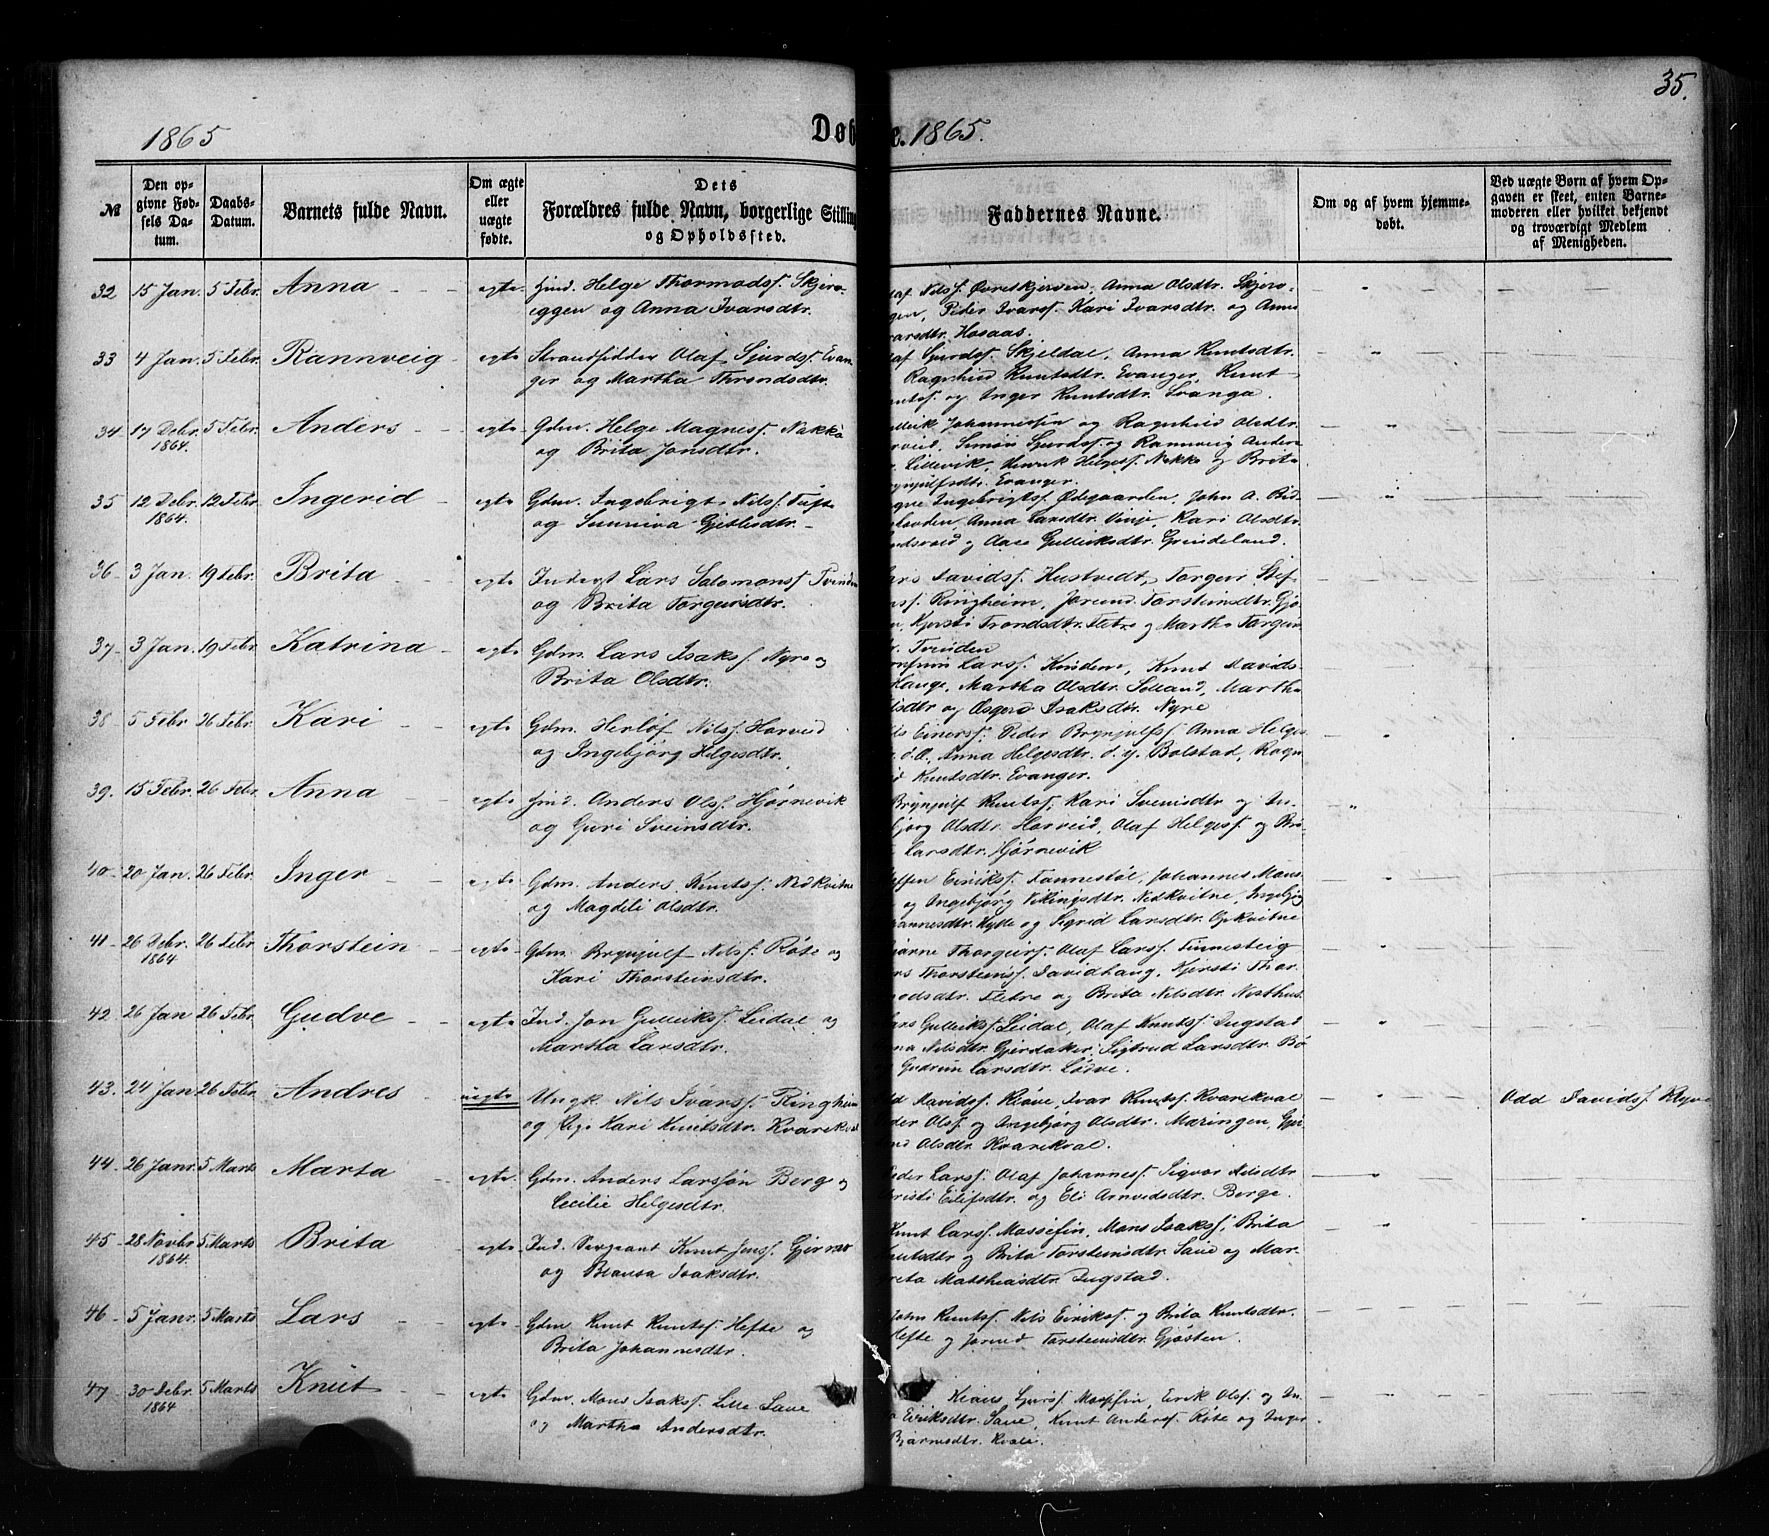 35.
1865
Døb
e. 1865.
№
Den op-
givne Fød-
sels Da-
tum.
Daabs-
Datum.
Barnets fulde Navn.
Om ægte
eller
uægte
fødte.
Dets
Forældres fulde Navn, borgerlige Stilling
og Opholdssted.
Faddernes Navne.
Om og af hvem hjemme-
døbt.
Ved uægte Børn af hvem Op-
gaven er skeet, enten Barne-
moderen eller hvilket bekjendt
og troværdigt Medlem
af Menigheden.
32 15 Jan. 5 Febr. Anna - egte Helge Thormodsf. Skjero-
eggen og Anna Ivarsdtr.
af Nilsf. Øvreskjerven, Anna Olsdtr. Skjero-
gen, Peder Ivarsf. Kari Ivarsdtr. og Anna
varsdtr. Hosaas.
33 4 Jan. 5 Febr. Rannveig - egte Strandsidder Olaf Sjurdsf. Evan-
ger og Martha Throndsdtr.
af Sjurdsf. Skjeldal, Anna Knutsdtr.
Ragnhild Knutsdtr. Evanger, Knut
nutsf. og Inger Knutsdtr. Svanga.
34 17 Debr. 1864. 5 Febr. Anders - egte Gdm. Helge Magnesf. Nekko
og Brita Jonsdtr.
Johannessen og Ragnhild Olsdtr.
Simon Sjurdsf. og Rannveig Anders
Lillevik, Henrik Helgesf. Nekko og Brita
rynjulfsdtr. Evanger.
35 12 Debr. 1864. 12 Febr. Ingerid - egte Gdm. Ingebrigt Nilsf. Tufte
og Sunniva Gjetlesdtr.
gne Ingebrigtsf. Ødegaarden, John A.
Anna Larsdtr. Vinje, Kari Olsdtr.
ndsvold og Aase Gulleiksdtr. Grindeland.
36 3 Jan. 19 Febr. Brita - egte Inderst Lars Salomonsf. Tvinden
og Brita Torgeirsdtr.
ars Davidsf. Hustvedt, Torgeir Stef
nsf. Ringheim, Jorund Torsteinsdtr. Gjø
Kjersti Trondsdtr. Fletre og Martha Torgeir
Tvinden
37 3 Jan. 19 Febr. Katrina - egte Gdm. Lars Isaksf. Nyre og
Brita Olsdtr.
Larsf. Kindene, Knut Davids-
Hauge, Martha Olsdtr. Selland, Martha
lsdtr og Osgerd Isaksdtr. Nyre
38 5 Febr 26 Febr. Kari - egte Gdm. Herlof Nilsf. Horveid
og Ingebjørg Helgesdtr.
ls Einersf. Peder Brynjulfsf. Anna Helges
d. Æ, Anna Helgesdtr. d. y. Bolstad, Ragn
ild Knutsdtr. Evanger.
39. 15 Febr. 26 Febr. Anna - egte Anders Olsf. Hjørnevik
og Guri Sveinsdtr.
Brynjulf Knutsf. Kari Sveinsdtr og In-
bjørg Olsdtr. Horveid, Olaf Helgesf. og Bri
Larsdtr. Hjørnevik
40 20 Jan. 26 Febr. Inger - egte Gdm. Anders Knutsf. Nedkvitne
og Magdeli Olsdtr.
effen Eiriksf. Fannestøl, Johannes Mons
og Ingebjørg Vikingsdtr. Nedkvitne, Ingebjø
hannesdtr. Hylle og Sigrid Larsdtr. Opkvitne
41 26 Debr. 1864 26 Febr. Thorstein - egte Gdm. Brynjulf Nilsf. Røte og
Kari Thorsteinsdtr.
jarne Thorgeirsf. Olaf Larsf. Finnesteig
rs Thorsteinsf. Davidhaug, Kjersti Thor
modsdtr. Fletre og Brita Nilsdtr. Nesthus.
42 26 Jan 26 Febr. Gudve - egte Ind. Jon Gulleiksf. Leidal og
Martha Larsdtr.
ars Gulleiksf. Leidal, Olaf Knutsf. Dugstad
na Nilsdtr. Gjerdaker, Sigtrud Larsdtr. Bø
Gudrun Larsdtr. Løeve.
43. 24 Jan 26 Febr Andres - uegte Ungk. Nils Ivarsf. Ringheim
og Pige Kari Knutsdtr. Kvarekval
dd Davidsf. Kløve, Ivar Knutsf. Kvarekval
eder Olsf. og Ingebjørg Olsdtr. Møringen, Gjer
nd Olsdtr. Kvarekval.
Odd Davidsf. Kløve
44. 26 Janr. 5 Marts Marta - egte. Gdm. Anders Larssøn Berg og
Cecilie Helgesdtr.
eder Larsf. Olaf Johannesf. Sigvor Nilsdtr
hristi Eilifsdtr. og Eli Arnvidsdtr. Berge.
45 28 Novbr 1864. 5 Marts Brita - egte Ind. Sergeant Knut Jensf. Gjernes
og Blansa Isaksdtr.
Knut Larsf. Møssefin, Mons Isaksf. Brita
nutsdtr og Brita Torsteinsdtr. Saue og Mar-
greta Matthiasdtr. Dugstad.
46 5 Janr. 5 Marts Lars - egte Gdm. Knut Knutsf. Hefte og
Brita Johannesdtr.
John Knutsf. Nils Eiriksf. og Brita Knutsdtr.
Hefte og Jorund Torsteinsdtr. Gjøsten.
47 30 Debr. 1864 5 Marts Knut - egte Gdm. Mons Isaksf. Lille Saue
og Martha Andersdtr.
Klaus Sjursf. Møssfin, Eirik Olsf. og In-
a Eiriksdtr. Saue, Knut Andersf. Røte og Inger
Bjarnesdtr. Kvale.